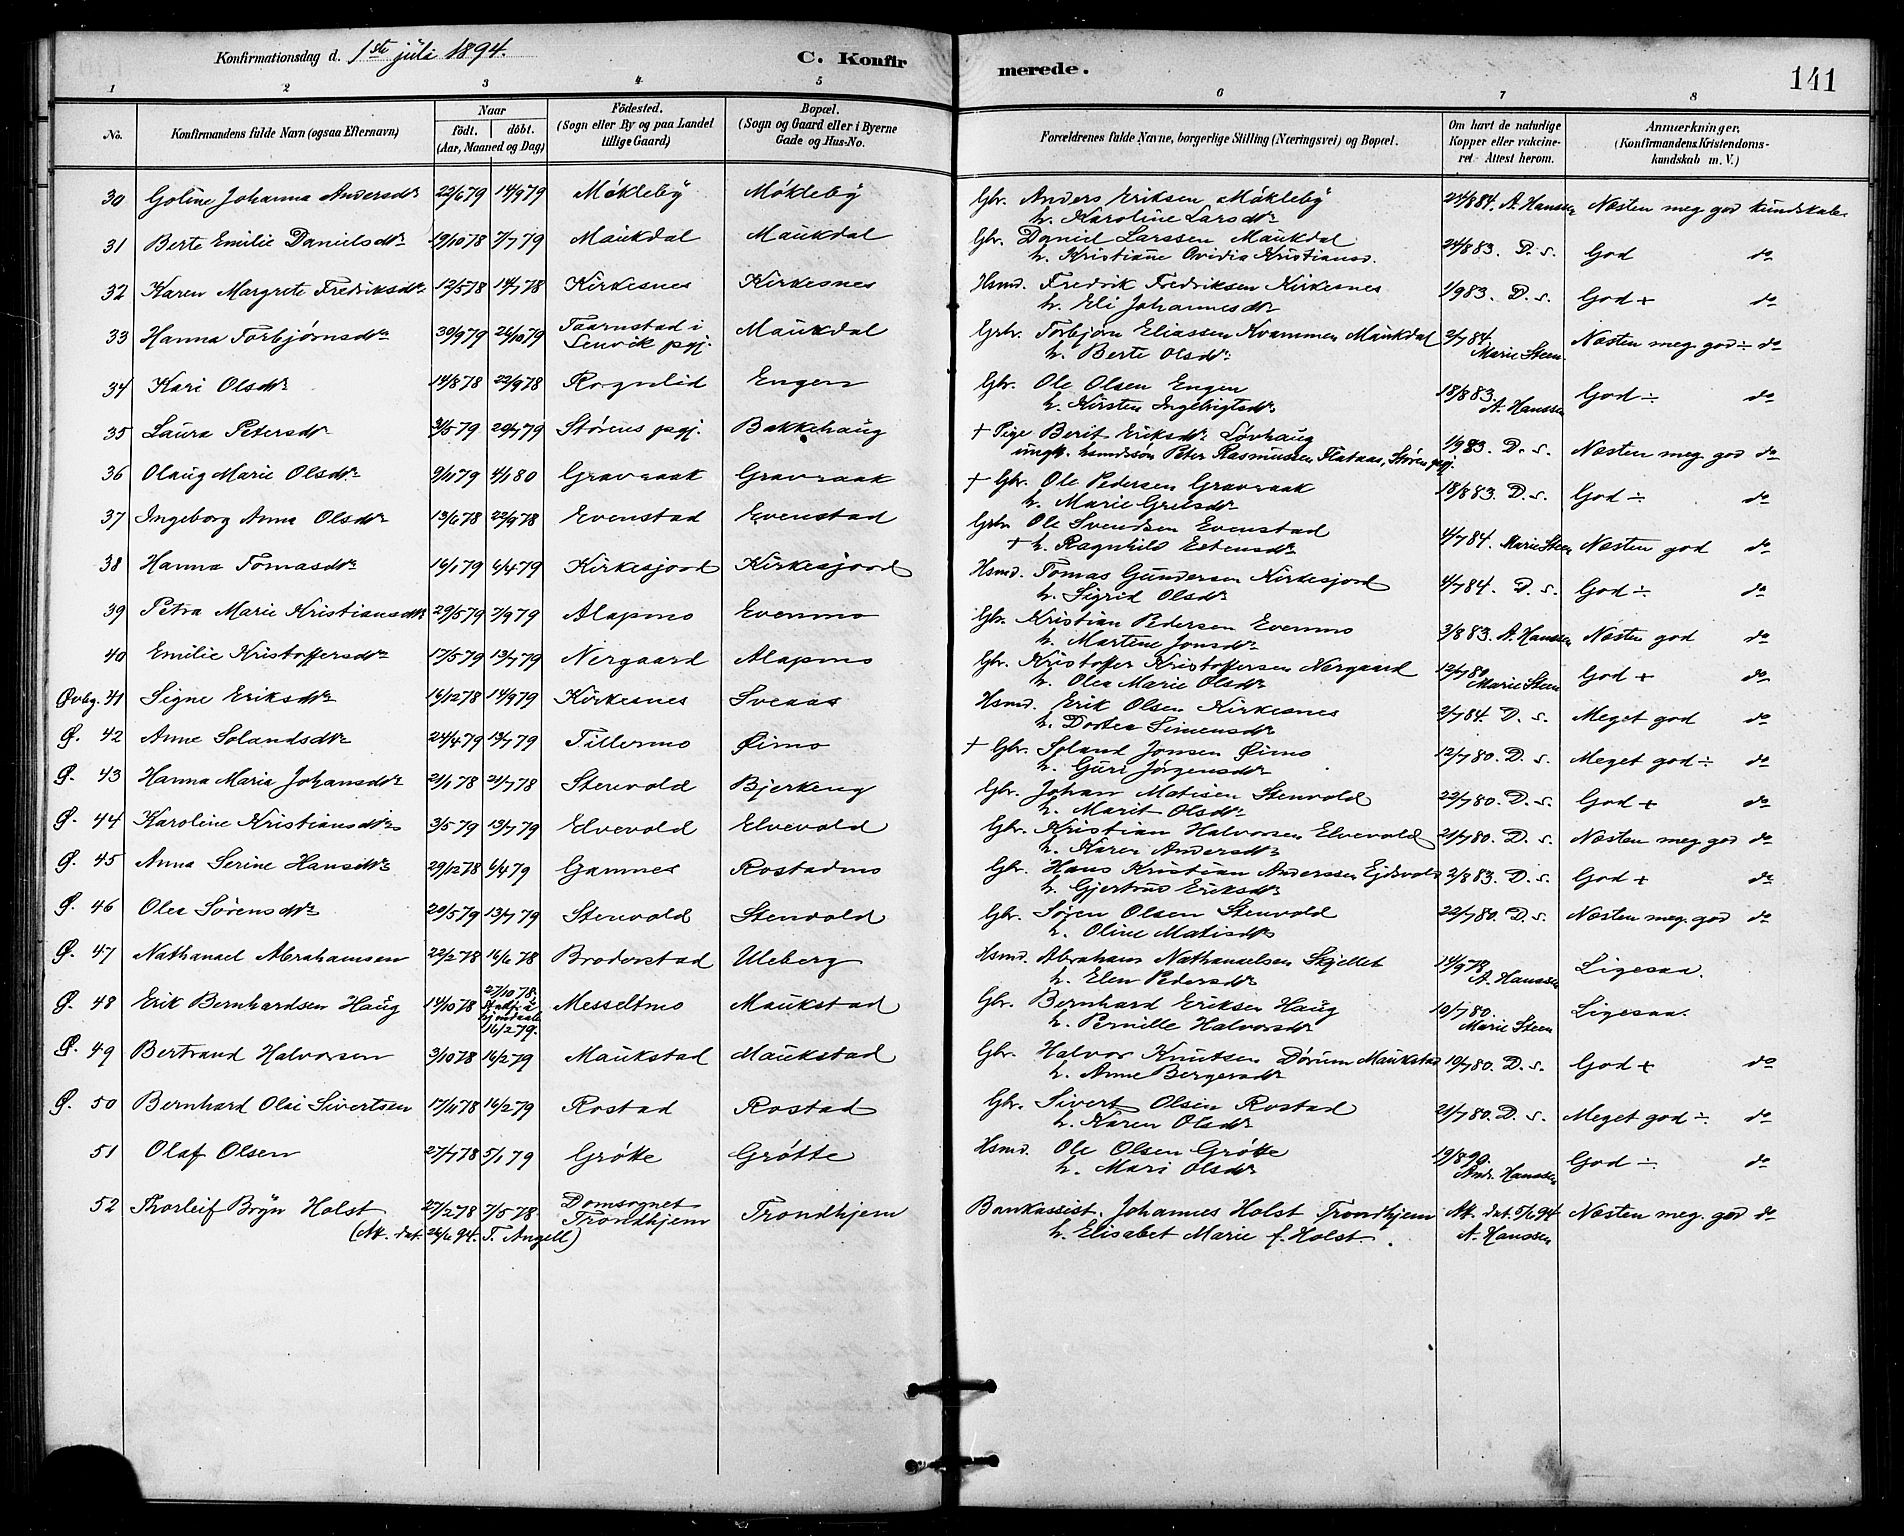 Konfirmationsdag d. 1ste juli 1894.
C. Konfirmerede.
141
1 2 3 4 5 6 7 8
No.
Konfirmandens fulde Navn (ogsaa Efternavn)
Naar
födt. döbt.
(Aar, Maaned og Dag)
Födested.
(Sogn eller By og paa Landet
tillige Gaard)
Bopæl.
(Sogn og Gaard eller i Byerne
Gade og Hus-No.
Forældrenes fulde Navne, borgerlige Stilling (Næringsvei) og Bopæl.
Om havt de naturlige
Kopper eller vakcine-
ret Attest herom.
Anmærkninger.
(Konfirmandens Kristendoms-
kundskab m. V.)
30 Goline Johanna Andersdtr 22/6 79 14/9 79 Mókleby Mókleby Gbr. Anders Eriksen Mókleby 24/8 84. A. Hanssen Næsten meg god kundskab
h. Karoline Larsdtr
31 Berte Emilie Danielsdtr 19/10 78 7/7 79 Maukdal Maukdal Gbr. Daniel Larssen Maukdal 24/8 83. D. s. God do
h. Kristiane Ovidia Kristiansd.
32 Karen Margrete Fredriksdtr 12/5 78 14/7 78 Kirkesnes Kirkesnes Hsmd. Fredrik Fredriksen Kirkesnes 1/9 83. D. s. God + do
h. Eli Johannesdtr
33 Hanna Torbjørnsdtr 30/9 79 26/10 79 Taarnstad i Maukdal Gbr. Torbjørn Eliassen Kvammen Maukdal 2/7 84. Næsten meg. god ÷ do
Lenvik pgj. h. Berte Olsdtr Marie Steen
34 Kari Olsdtr 14/8 78 22/9 78 Rognlid Engen Gbr. Ole Olsen Engen 18/8 83. God ÷ do
h. Kirsten Ingebrigtsdtr A. Hanssen
35 Laura Petersdtr 3/5 79 20/7 79 Størens pgj. Bakkehaug + Pige Berit Eriksdtr Løvhaug 1/9 83. D. s. Næsten meg. god do
ungk. husmdssön Peter Rasmussen Flataas, Støren pgj.
36 Olaug Marie Olsdtr 9/11 79 4/1 80 Gravraak Gravraak + Gbr. Ole Pedersen Gravraak 18/8 83. D. s. God ÷ do
h. Marie Gruesdtr
37 Ingeborg Anna Olsdtr 13/6 78 22/9 78 Evenstad Evenstad Gbr. Ole Svendsen Evenstad 4/7 84. Marie Steen Næsten god do
+ h. Ragnhild Estensdtr
38 Hanna Tomasdtr 16/1 79 6/4 79 Kirkesjord Kirkesjord Hsmd. Tomas Gundersen Kirkesjord 4/7 84. D. s. God ÷ do
h. Sigrid Olsdtr
39 Petra Marie Kristiansdtr 29/5 79 7/9 79 Alapmo Evenmo Gbr. Kristian Pedersen Evenmo 3/8 83. A. Hanssen Næsten god do
h. Martine Jonsdtr
40 Emilie Kristoffersdtr 17/5 79 13/7 79 Nergaard Alapmo Gbr. Kristoffer Kristoffersen Nergaard 12/7 80. God + do
h. Olea Marie Olsdtr Marie Steen
Øvbg. 41 Signe Eriksdtr 16/12 78 14/9 79 Kirkesnes Sveaas Hsmd. Erik Olsen Kirkesnes 2/7 84. D. s. Meget god do
h. Dortea Simensdtr
Ø. 42 Anne Solandsdtr 24/4 79 13/7 79 Tillermo Øimo + Gbr. Soland Jonsen Øimo 12/7 80. D. s. Meget god ÷ do
h. Guri Jørgensdtr
Ø. 43 Hanna Maria Johansdtr 21/1 78 21/7 78 Stenvold Bjerkeng Gbr. Johan Matisen Stenvold 22/7 80. D. s. God + do
h. Marit Olsdtr
Ø. 44 Karoline Kristiansdtr 3/5 79 13/7 79 Elvevold Elvevold Gbr. Kristian Halvorsen Elvevold 21/7 80. D. s. Næsten meg. god do
h. Karen Andersdtr
Ø. 45 Anna Serine Hansdtr 29/12 78 6/4 79 Gamnes Rostadmo Gbr. Hans Kristian Anderssen Ejdsvold 2/8 83. D. s. God + do
h. Gjertrud Eriksdtr
Ø. 46 Olea Sørensdtr 20/5 79 13/7 79 Stenvold Stenvold Gbr. Søren Olsen Stenvold 22/7 80. D. s. Næsten meg. god do
h. Oline Matisdtr
Ø. 47 Nathanael Abrahamsen 22/2 78 16/6 78 Broderstad Uleberg Hsmd. Abraham Nathanaelsen Skjellet 14/9 78 Ligesaa.
h. Elen Pedersdtr A. Hanssen
Ø. 48 Erik Bernhardsen Haug 14/10 78 27/10 78. Messeltmo Maukstad Gbr. Bernhard Eriksen Haug 10/7 80. Ligesaa.
16/2 79. h. Pernille Halvorsdtr Marie Steen
Ø. 49 Bertrand Halvorsen 3/10 78 16/2 79 Maukstad Maukstad Gbr. Halvor Knutsen Dørum Maukstad 10/7 80. D. s. God + do
h. Anne Bergersdtr
Ø. 50 Bernhard Olai Sivertsen 17/11 78 16/2 79 Rostad Rostad Gbr. Sivert Olsen Rostad 21/7 80. D. s. Meget god ÷ do
h. Karen Olsdtr
51 Olaf Olsen 27/7 78 5/1 79 Grøtte Grøtte Hsmd. Ole Olsen Grøtte 19/8 90. God ÷ do
h. Mari Olsdtr Andr. Hanssen
52 Thorleif Bryn Holst 27/2 78 7/5 78 Domsognet Trondhjem Bankassist. Johannes Holst Trondhjem At. dat. 5/6 94 Næsten meg. god do
(At. dat. 26/6 94. T. Angell) Trondhjem h. Elisabet Marie f. Holst. A. Hanssen